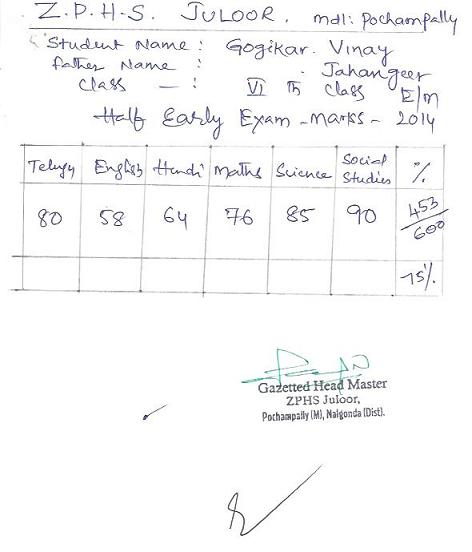 Z.P.H.S. JULOOR. mdl: Pochampally
Student Name : Gogikar. Vinay
father Name : Jahangeer
Class — : VI Th Class E/m
Half Early Exam - marks - 2014
Telugu English Hindi Maths Science Social Studies %
80 58 64 76 85 90 453/600
75%
Gazetted Head Master
ZPHS Juloor,
Pochampally (M), Nalgonda (Dist).